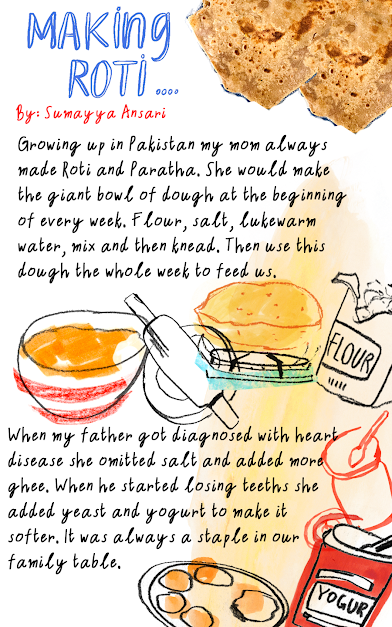 MAKING
ROTI ....
By: Sumayya Ansari
Growing up in Pakistan my mom always
made Roti and Paratha. She would make
the giant bowl of dough at the beginning
of every week. Flour, salt, lukewarm
water, mix and then knead. Then use this
dough the whole week to feed us.
FLOUR
When my father got diagnosed with heart
disease she omitted salt and added more
ghee. When he started losing teeths she
added yeast and yogurt to make it
softer. It was always a staple in our
family table.
YOGUR